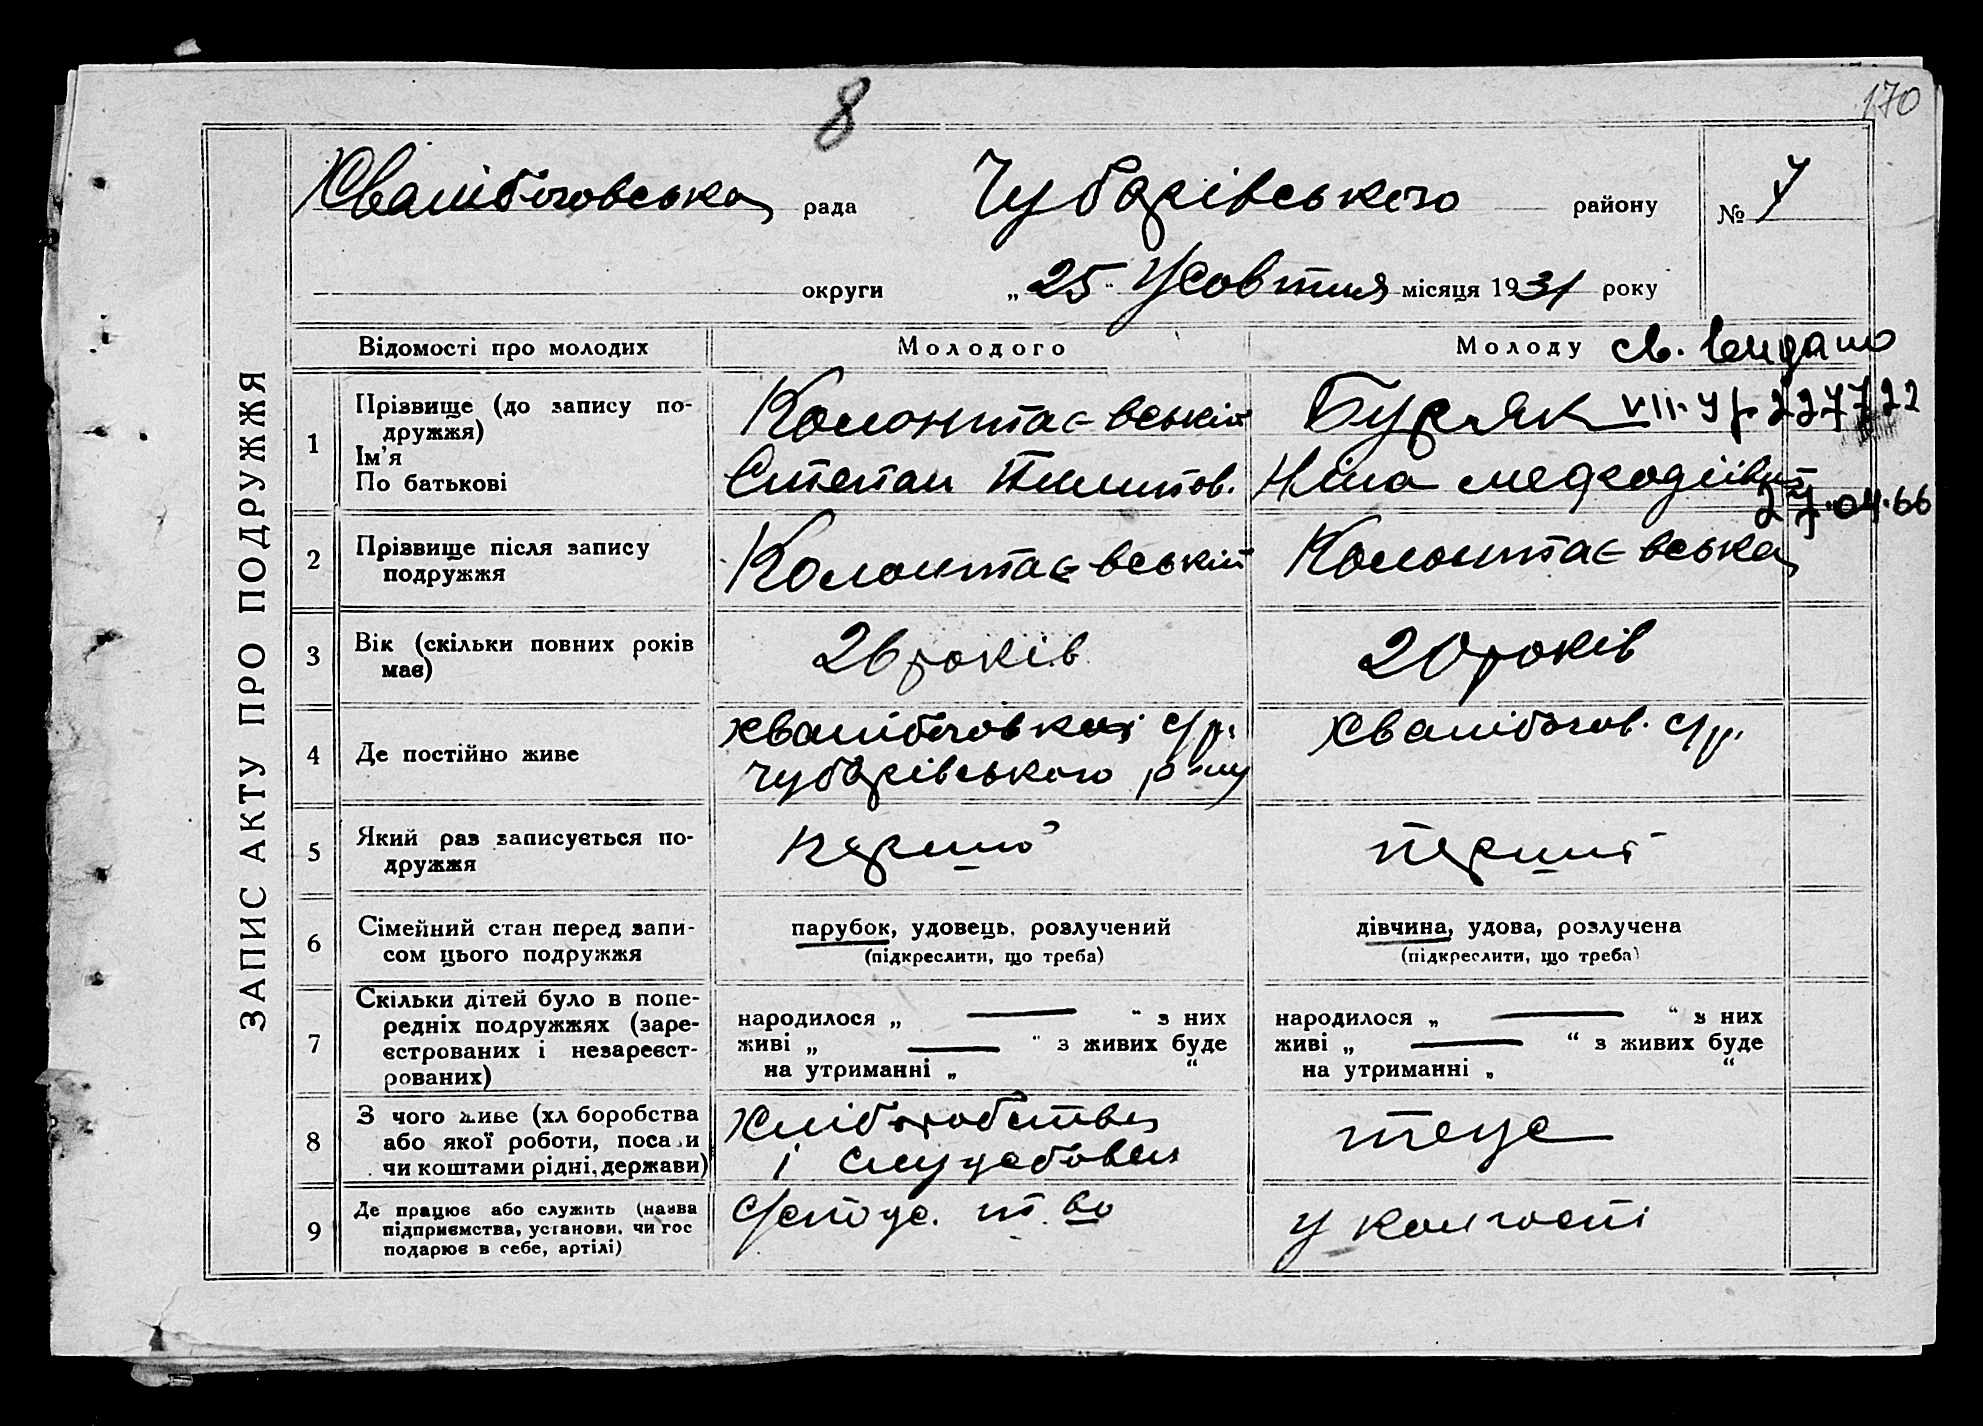 8
170
ЗАПИС АКТУ ПРО ПОДРУЖЖЯ
Хвалібоговська рада Чубарівського району № 7
округи „25" Жовтня місяця 1931 року
Відомості про молодих
Молодого
Молоду св. видано
1
Прізвище (до запису по-
дружжя)
Ім'я
По батькові
Колонтаєвській
Степан Пилипов.
Буряк VII-УР 227722
Ніна Мефодіївн
27.04.66
2
Прізвище після запису
подружжя
Колонтаєвській
Колонтаєвська
3
Вік (скільки повних років
має)
26 років
20 років
4
Де постійно живе
Хвалібоговкої с/р.
Чубарівського р-ну
Хвалібогов. с/р.
5
Який раз записується по-
дружжя
перший
перший
6
Сімейний стан перед запи-
сом цього подружжя
парубок, удовець, розлучений
(підкреслити, що треба)
дівчина, удова, розлучена
(підкреслити, що треба)
7
Скільки дітей було в попе-
редніх подружжях (заре-
єстрованих і незареєст-
рованих)
народилося „ — " з них
живі „ — " з живих буде
на утриманні „ "
народилося „ — " з них
живі „ — " з живих буде
на утриманні „ "
8
З чого живе (хліборобства
або якої роботи, посади
чи коштами рідні, держави)
Хліборобства
і службовец
теже
9
Де працює або служить (назва
підприємства, установи, чи гос
подарює в себе, артілі)
т. во
у колгоспі